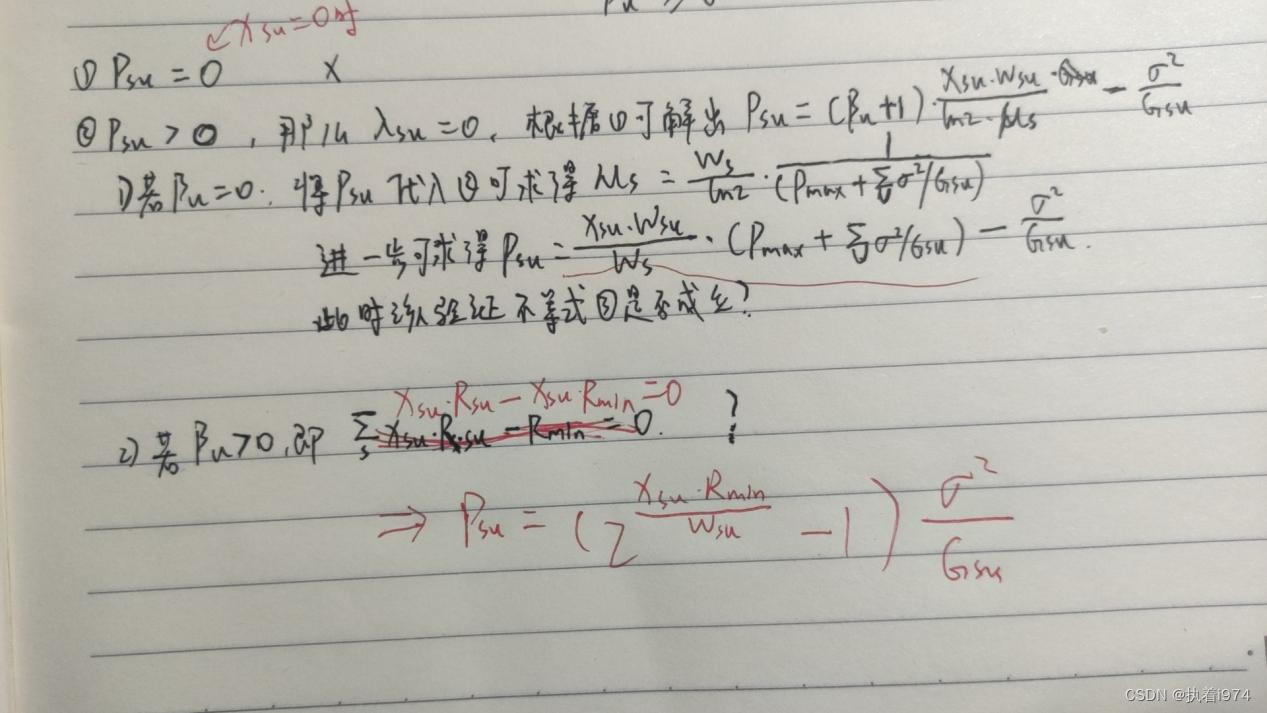 ↙Xsu=0时
① Psu = 0 X
② Psu > 0, 那么 λsu = 0, 根据①可解出 Psu = (βu+1)·\frac{Xsu·Wsu}{ln2·μs} - \frac{σ²}{Gsu}
1) 若βu=0. 将Psu代入④可求得 μs = \frac{Ws}{ln2}·\frac{1}{(Pmax+Σσ²/Gsu)}
进一步可求得 Psu = \frac{Xsu·Wsu}{Ws}·(Pmax+Σσ²/Gsu) - \frac{σ²}{Gsu}.
此时该验证不等式③是否成立?
Xsu·Rsu - Xsu·Rmin = 0
2) 若βu>0, 即 Σ_s Xsu·Rsu - Rmin = 0. ?
⇒ Psu = (2^{\frac{Xsu·Rmin}{Wsu}} - 1) \frac{σ²}{Gsu}
CSDN @执着i974